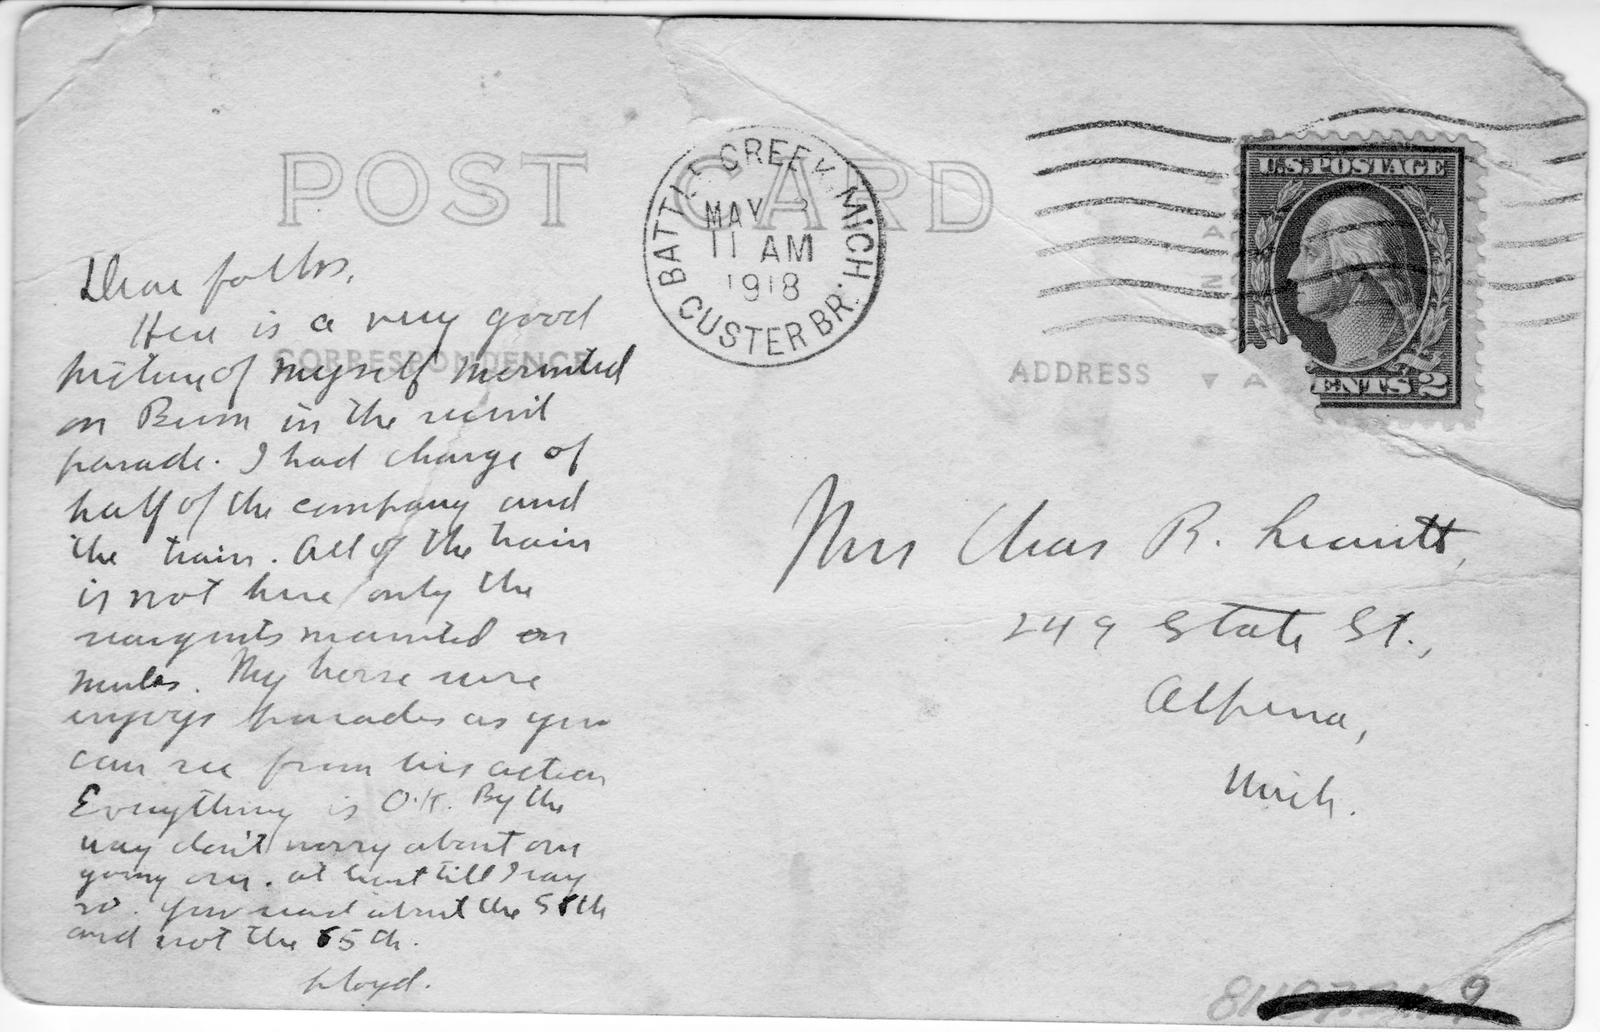 POST CARD
BATTLE CREEK, MICH.
MAY
11 AM
1918
CUSTER BR.
U.S. POSTAGE
CENTS 2
CORRESPONDENCE
ADDRESS
Dear folks,
Here is a very good
picture of myself mounted
on Bum in the recent
parade. I had charge of
half of the company and
the train. All of the train
is not here only the
sergents mounted on
mules. My horse sure
enjoys parades as you
can see from his action
Everything is O.K. By the
way don't worry about our
going over. at least till I say
so. You read about the 58th
and not the 85th.
Lloyd.
Mrs Chas R. Leavitt,
249 State St.,
Alpena,
Mich.